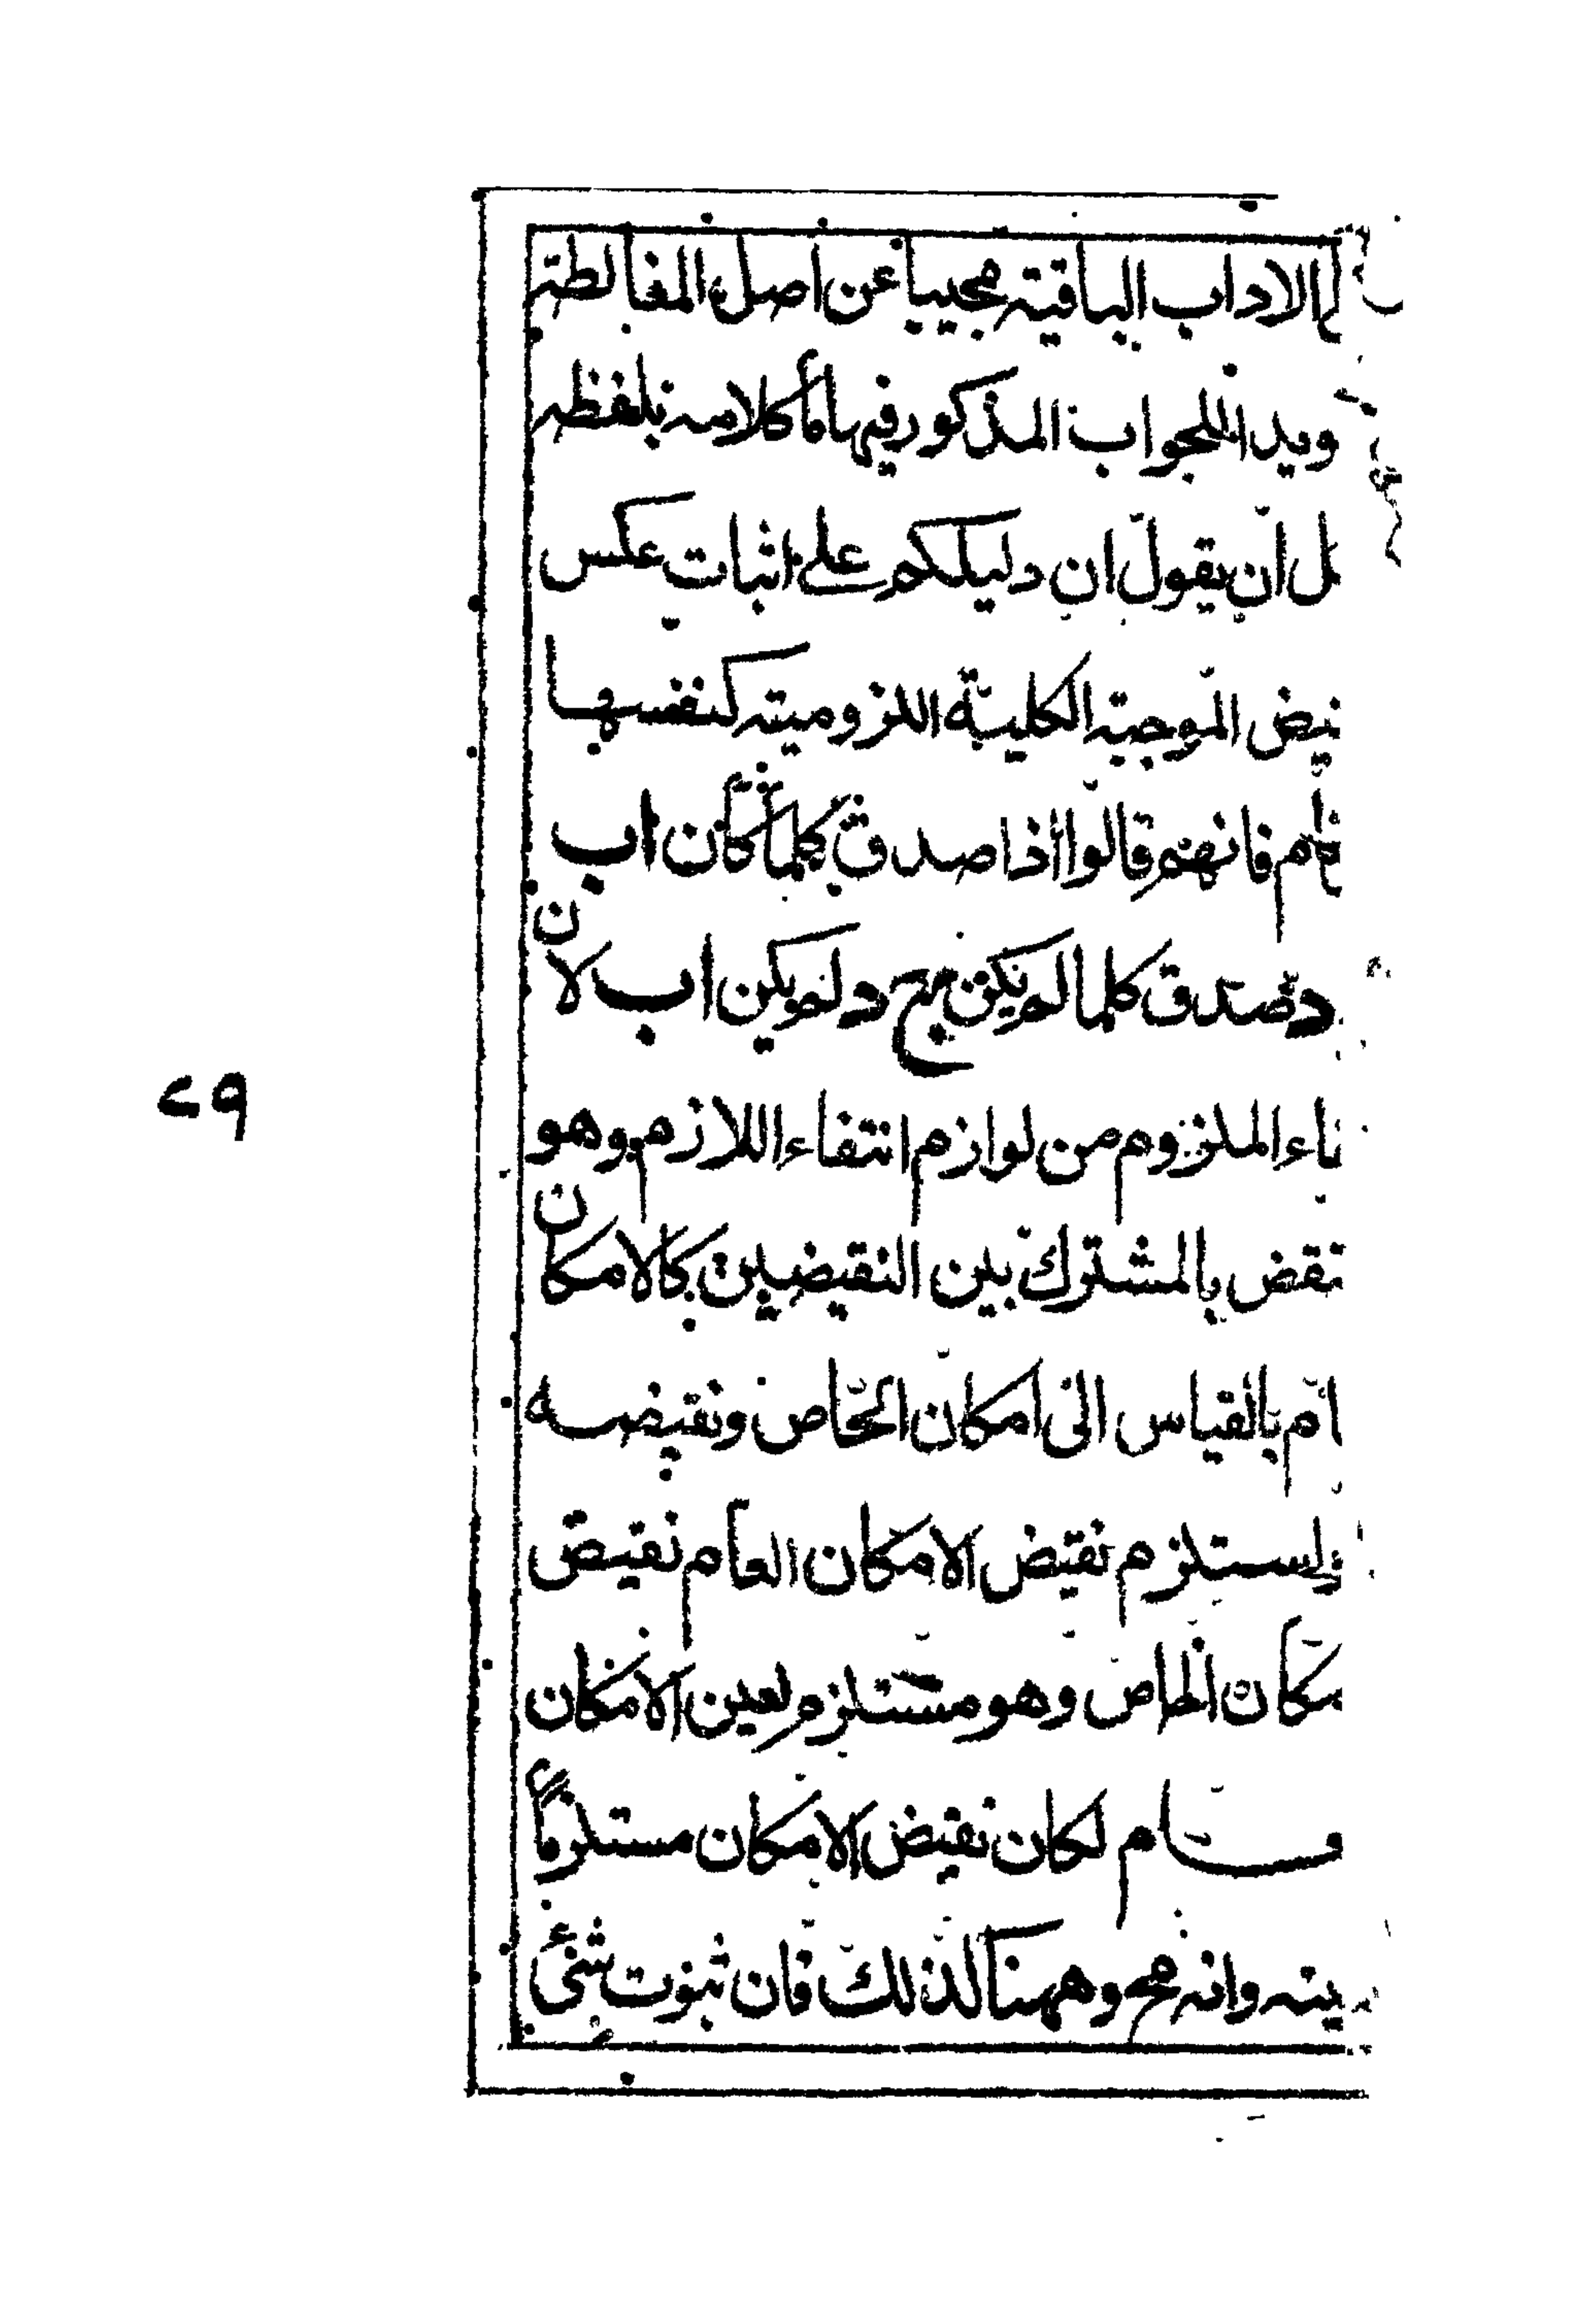 الاداب الباقية مجيبا عن اصل المغالطة
ويدا للجواب المذكور فيها ما كلامه بلفظه
ل ان يقول ان دليلكم على اثبات عكس
يض الموجبة الكلية اللزومية كنفسها
م فانهم قالوا اذا صدق كلما كان اب
د صدق كلما لم يكن ج د لم يكن اب لان
اء الملزوم من لوازم انتفاء اللازم وهو
نقض بالمشترك بين النقيضين كالامكان
ام بالقياس الى امكان الخاص ونقيضه
يستلزم نقيض الامكان العام نقيض
مكان الخاص وهو مستلزم لعين الامكان
ام لكان نقيض الامكان مستلزما
ينه وانه مح وههنا كذلك فان ثبوت شئ
٢٩